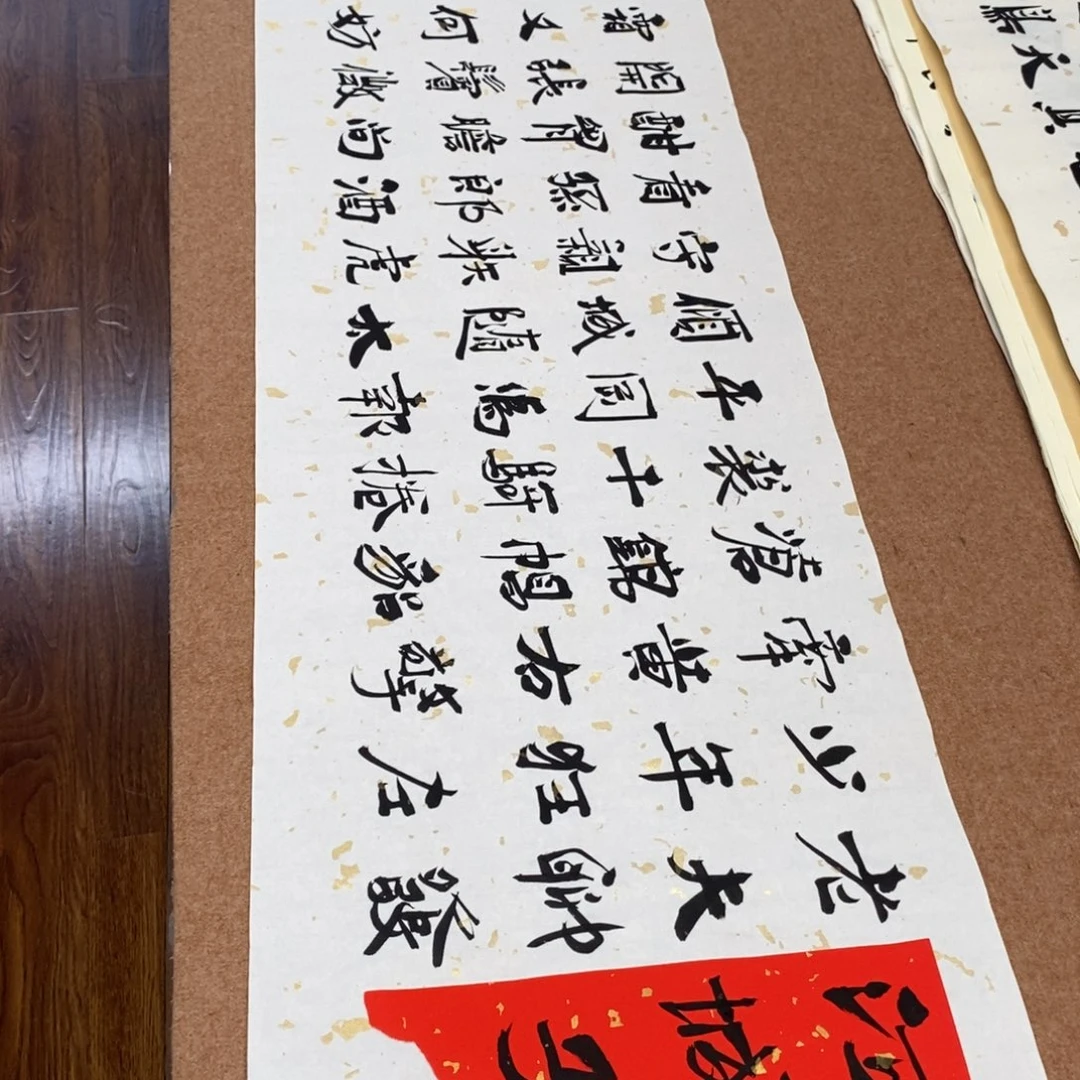 江城子
老夫聊發
少年狂左
牽黃右擎
蒼錦帽貂
裘千騎捲
平岡為報
傾城隨太
守親射虎
看孫郎酒
酣胸膽尚
開張鬢微
霜又何妨